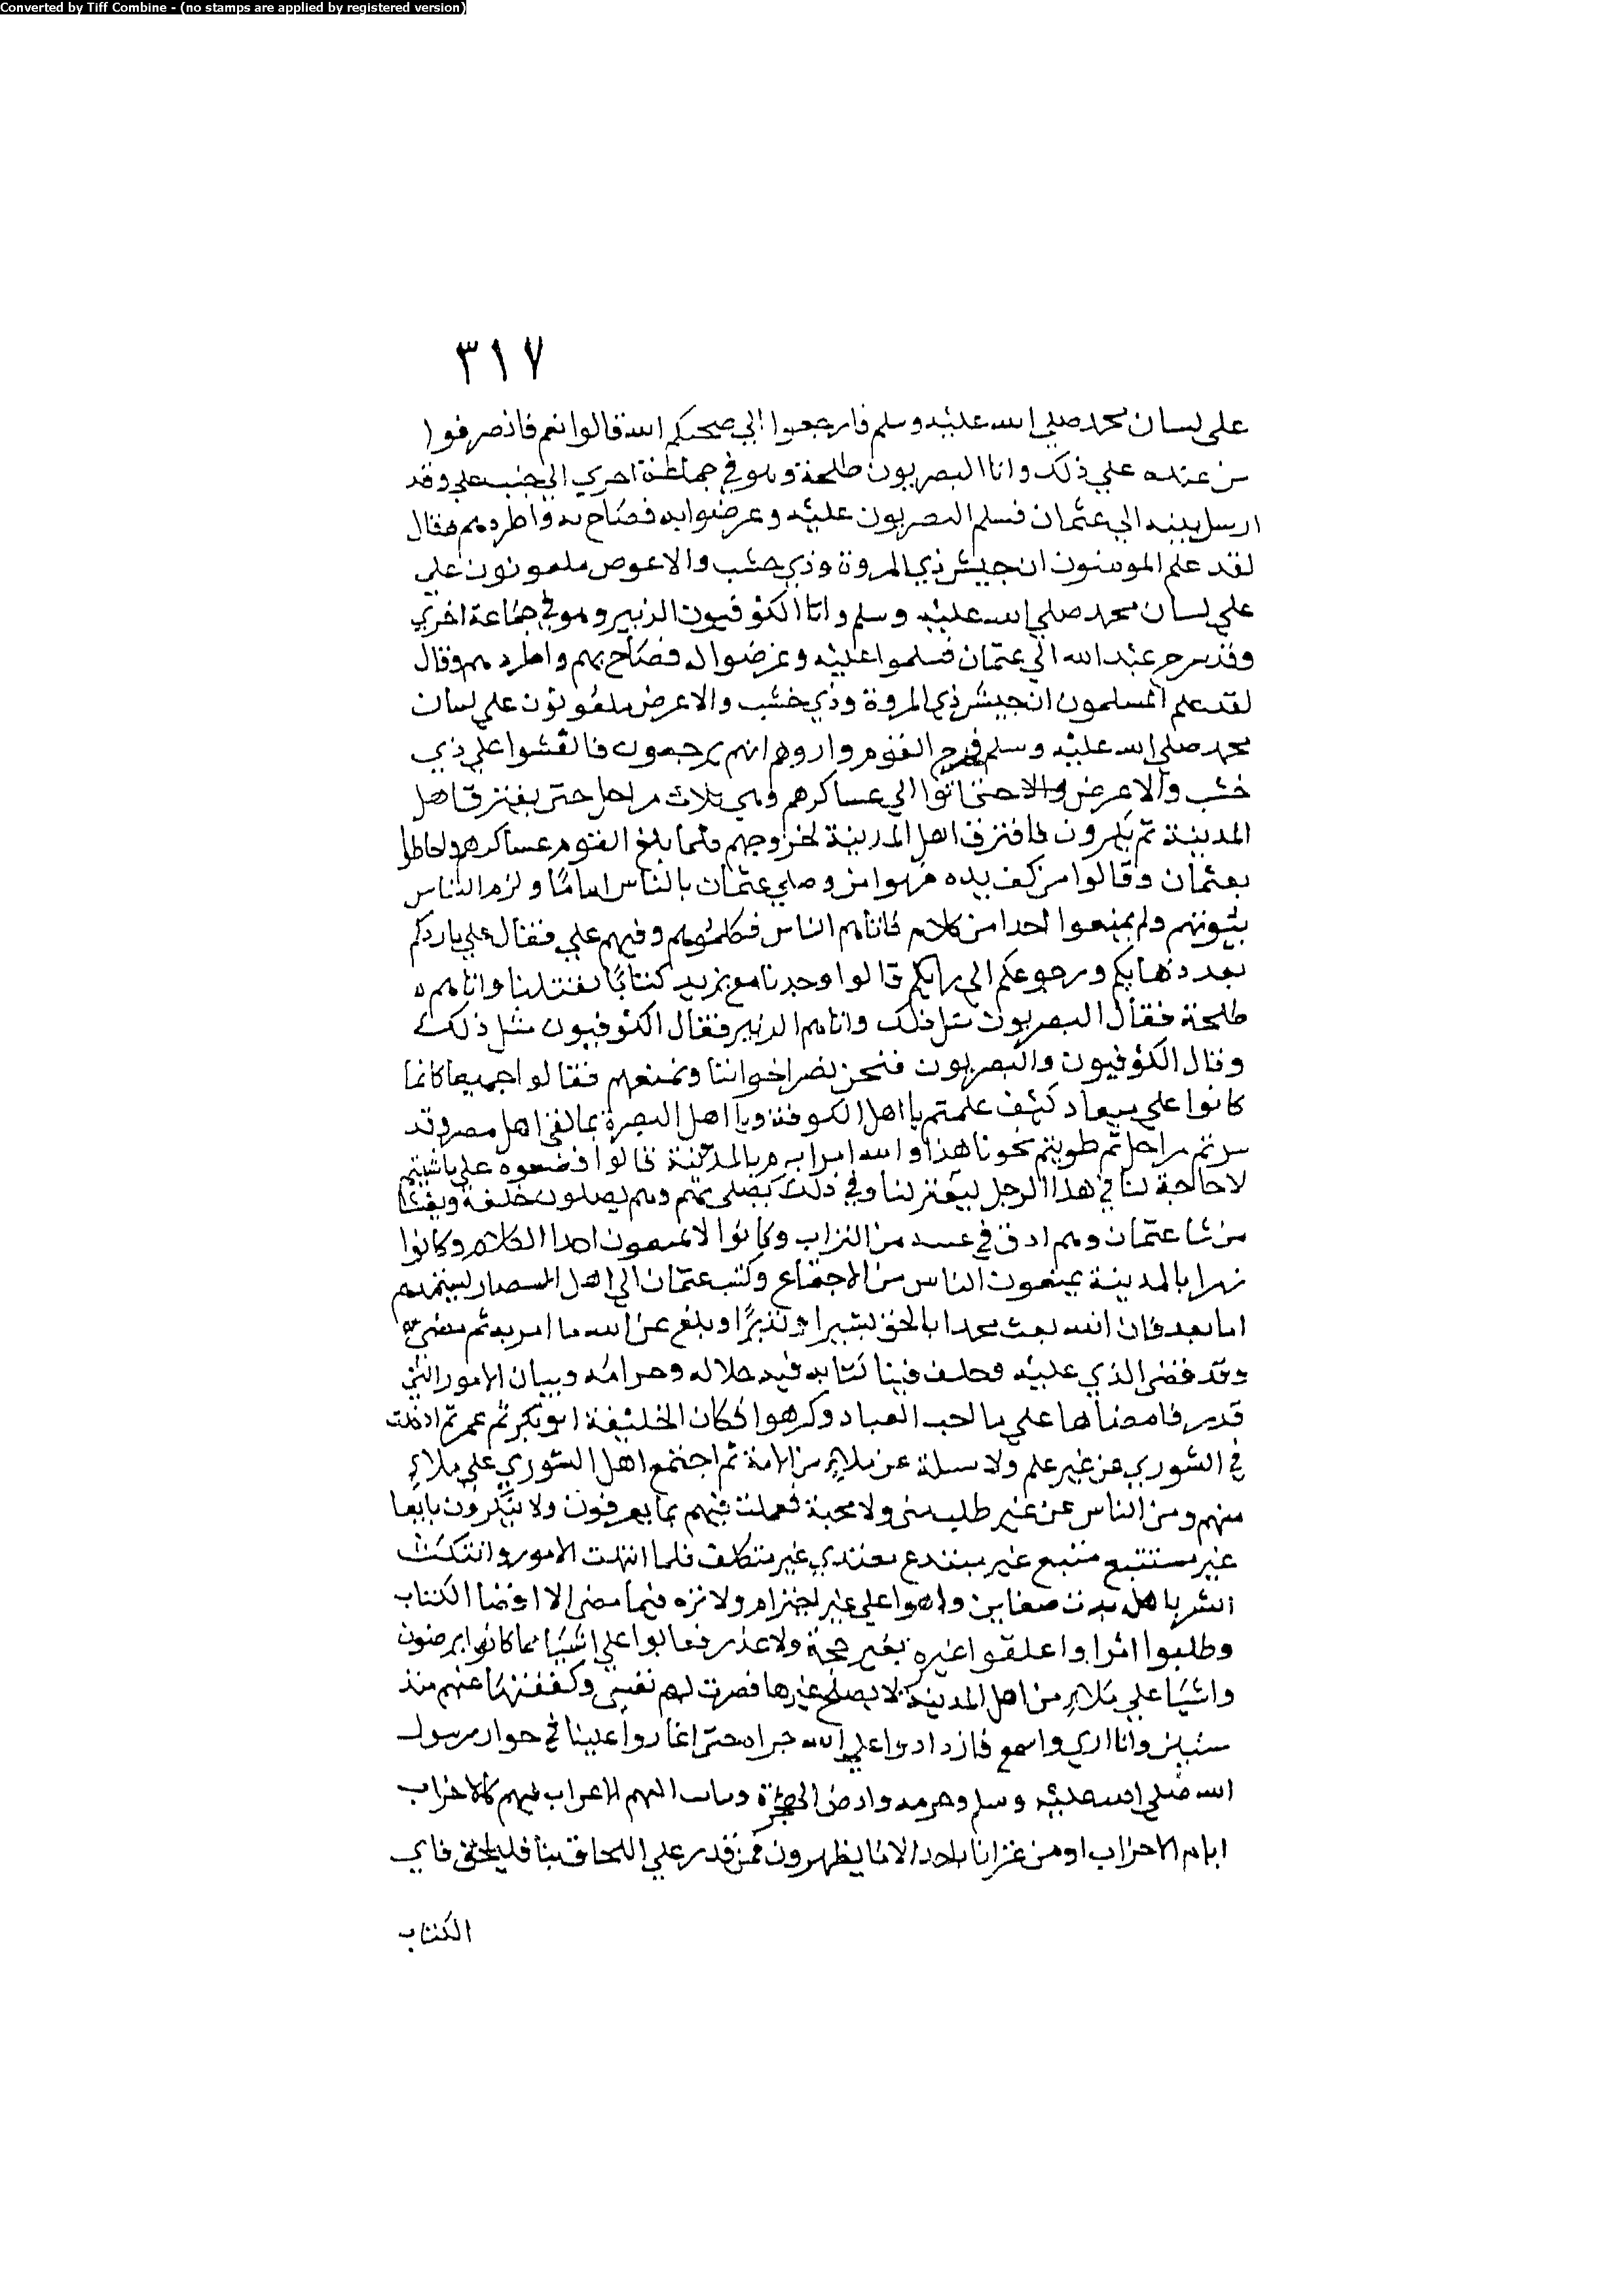 Converted by Tiff Combine - (no stamps are applied by registered version)
٣١٧
على لسان محمد صلي الله عليه وسلم فارجعوا الي صحبكم الله قالوا نعم فانصرفوا
من عنده علي ذلك واتا البصريون طلحة وهو في جماعة اخري الي جنب علي وقد
ارسل بينيه الي عثمان فسلم البصريون عليه وعرضوا به فصاح به واطردهم فقال
لقد علم المومنون ان جيش ذي المروة وذي خشب والاعوص ملعونون علي
علي لسان محمد صلي الله عليه وسلم واتا الكوفيون الزبير وهو في جماعة اخري
وقد سرح عبد الله الي عثمان فسلموا عليه وعرضوا له فصاح بهم واطردهم وقال
لقد علم المسلمون ان جيش ذي المروة وذي خشب والاعرض ملعونون علي لسان
محمد صلي الله عليه وسلم فخرج القوم واروهم انهم يرجعون فانفشوا علي ذي
خشب والاعرض حتى اتوا الي عساكرهم وهي ثلاث مراحل حتى يفترق اهل
المدينة ثم يكرون فافترق اهل المدينة لخروجهم فلما بلغ القوم عساكرهم احاطوا
بعثمان وقالوا من كف يده فهو امن وصلي عثمان بالناس اياما ولزم الناس
بيوتهم ولم يمنعوا احدا من كلام فاتاهم الناس فكلموهم وفيهم علي فقال علي ما ردكم
بعد ذهابكم ورجوعكم الي رايكم قالوا وجدنا مع بريد كتابا بقتلنا واتاهم
طلحة فقال البصريون مثل ذلك واتاهم الزبير فقال الكوفيون مثل ذلك
وقال الكوفيون والبصريون فنحن نضر اخواننا ونمنعهم فقالوا جميعا كانما
كانوا علي ميعاد كيف علمتم يا اهل الكوفة ويا اهل البصرة بما لقي اهل مصر وقد
سرتم مراحل ثم طويتم نحونا هذا والله امر ابرم بالمدينة قالوا فضعوه علي ما شيتم
لا حاجة لنا في هذا الرجل ليعتزلنا وفي ذلك يصلي بهم وهم يصلون خلفه ويغشا
من شا عثمان وهم ادق في عينه من التراب وكانوا لا يمنعون احدا الكلام وكانوا
زمرا بالمدينة يمنعون الناس من الاجتماع وكتب عثمان الي اهل الامصار ليستمدهم
اما بعد فان الله بعث محمدا بالحق بشيرا ونذيرا وبلغ عن الله ما امر به ثم مضي
وقد قضى الذي عليه وخلف فينا كتابه فيه حلاله وحرامه وبيان الامور التي
قدر فامضاها علي ما احب العباد وكرهوا فكان الخليفة ابو بكر ثم عمر ثم ادخلت
في الشوري عن غير علم ولا مسلة عن ملاءٍ من الامة ثم اجتمع اهل الشوري علي ملاءٍ
منهم ومن الناس عن غير طلب مني ولا محبة فعملت فيهم بما يعرفون ولا ينكرون تابعا
غير مستتبع متبع غير مبتدع مقتدي غير متكلف فلما انتهت الامور وانتكث
الشر باهله بدت ضغاين واهوا علي غير اجترام ولا تره فيما مضى الا امضا الكتاب
وطلبوا امرا واعلنوا غيره بغير حجة ولا عذر فعابوا علي اشيا مما كانوا يرضون
واشيا علي ملاءٍ من اهل المدينة لا يصلح غيرها فصبرت لهم نفسي وكففتها عنهم منذ
سنين وانا اري واسمع فازدادوا علي الله جراه حتى اغاروا علينا في جوار رسول
الله صلي الله عليه وسلم وحرمه وارض الهجرة وثاب اليهم الاعراب فهم كالاحزاب
ايام الاحزاب او من غزانا باحد الا ما يظهرون فمن قدر علي اللحاق بنا فليلحق فاتي
الكتاب